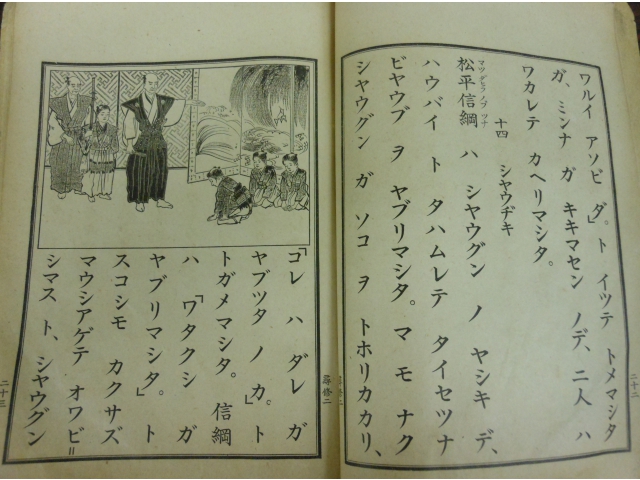 ワルイ アソビ ダ。」ト イツテ トメマシタ
ガ、ミンナ ガ キキマセン ノデ、二人 ハ
ワカレテ カヘリマシタ。
十四 シヤウヂキ
松平信綱 ハ シヤウグン ノ ヤシキ デ、
マツダヒラノブツナ
ハウバイ ト タハムレテ タイセツナ
ビヤウブ ヲ ヤブリマシタ。マ モ ナク
シヤウグン ガ ソコ ヲ トホリカカリ、
二十二
尋修二
「コレ ハ ダレ ガ
ヤブツタ ノ カ。」ト
トガメマシタ。 信綱
ハ 「ワタクシ ガ
ヤブリマシタ。」ト
スコシモ カクサズ
マウシアゲテ オワビ=
シマス ト、シヤウグン
尋修二
二十三